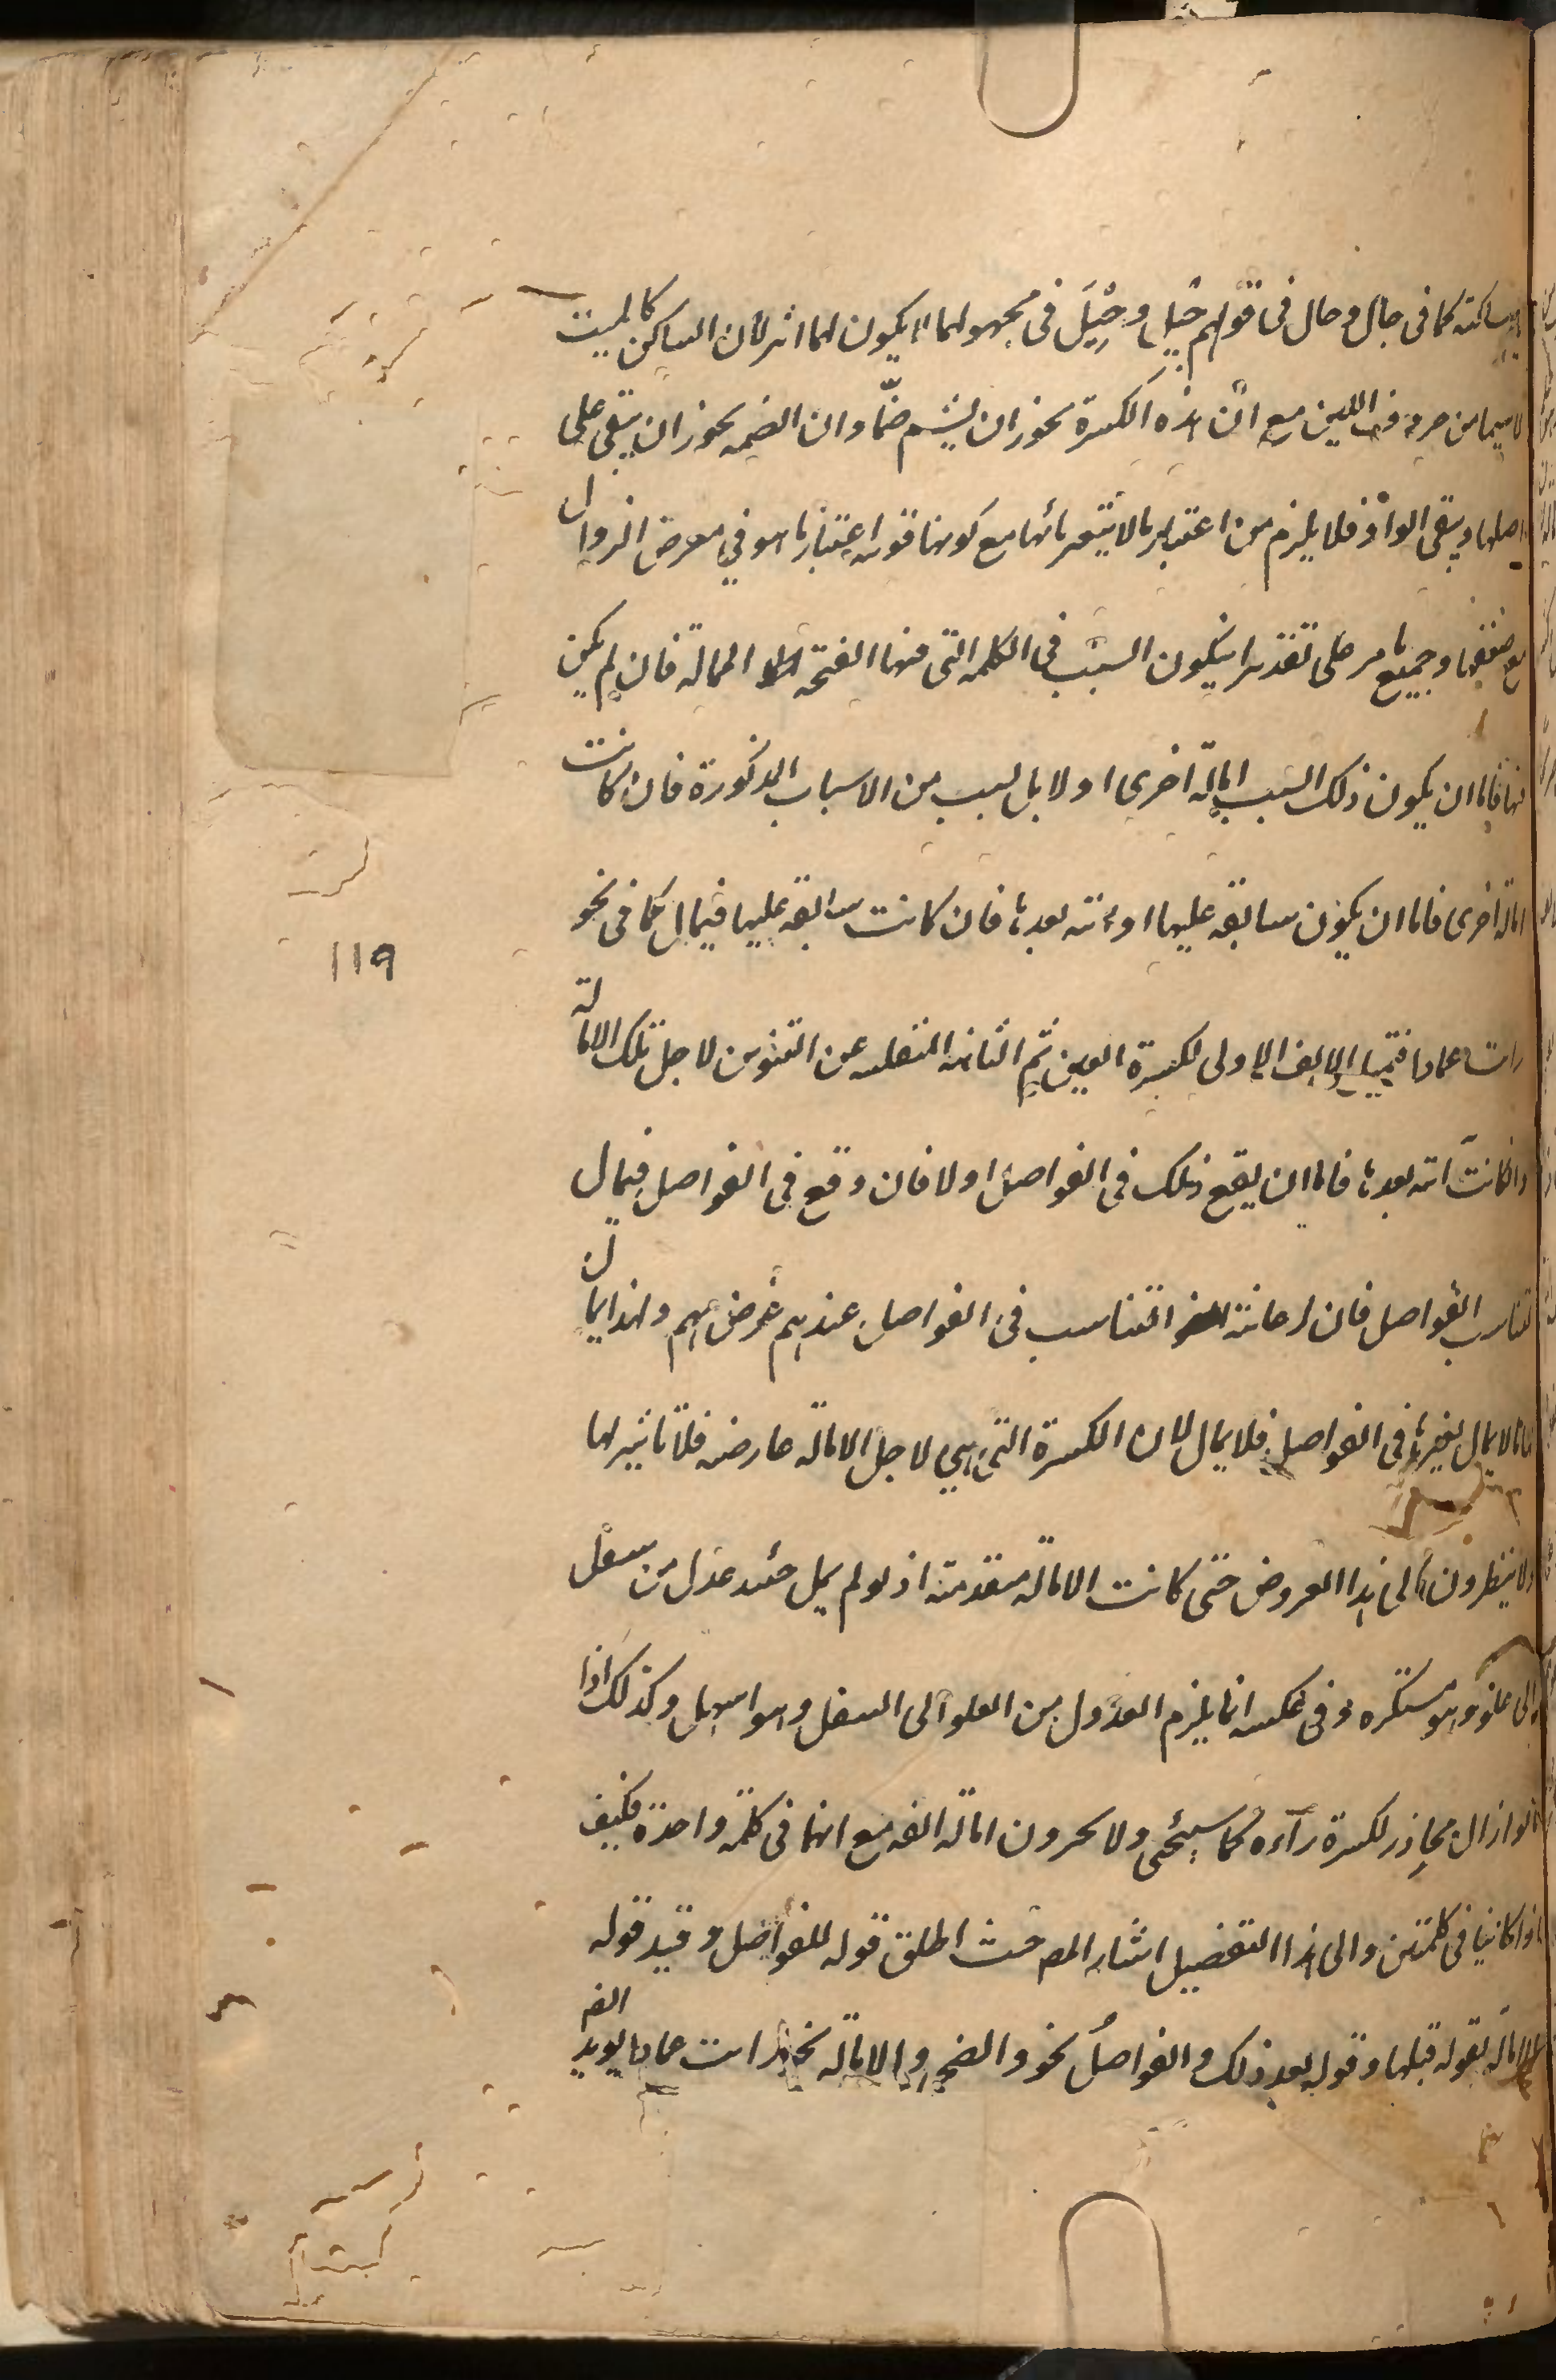 ساكنة كما في جال وحال في قولهم جيل وحيل في مجهولهما لا يكون لها اثر لأن الساكن كالميت
لاسيما من حروف اللين مع ان هذه الكسرة يجوز ان يشم ضمّا وان الضمه يجوز ان يبقى على
اصلها ويبقى الواو فلا يلزم من اعتبار ما لا يتغير مع كونها قويه اعتبار ما هو في معرض الزوال
مع ضعفها وجميع ما مر على تقدير ان يكون السبب في الكلمه التي فيها الفتحة الممالة فان لم يكن
فيها فاما ان يكون ذلك السبب امالة اخرى او لا بل سبب من الاسباب المذكورة فان كانت
امالة اخرى فاما ان يكون سابقة عليها او آتية بعدها فان كانت سابقة عليها فيمال كما في نحو
رايت عمادا فتميل الالف الاولى لكسرة العين ثم الثانية المنقلبه عن التنوين لاجل تلك الامالة
وان كانت آتية بعدها فاما ان يقع ذلك في الفواصل اولا فان وقع في الفواصل فيمال
لتناسب الفواصل فان رعاية التناسب في الفواصل عندهم غرض مهم ولهذا يمال
ما لا يمال لغيرها في الفواصل فلا يمال لان الكسرة التي هي لاجل الامالة عارضه فلا تاثير لها
ولا ينظرون الى هذا العروض حتى كانت الامالة متقدمة اذ لو لم يمل حينئذ عدل من سفل
الى علو وهو مستكره وفي عكسه انما يلزم العدول من العلو الى السفل وهو اسهل وكذلك اذا
امالوا ذال محاذر لكسرة رآءه كما سيجئ ولا يجرون امالة الفه مع انهما في كلمة واحدة فكيف
اذا كانتا في كلمتين والى هذا التفصيل اشار المص حيث اطلق قوله للفواصل وقيد قوله
الامالة بقوله قبلها وقوله بعد ذلك والفواصل نحو والضحى والامالة نحو رايت عمادا يويد
الفه
119